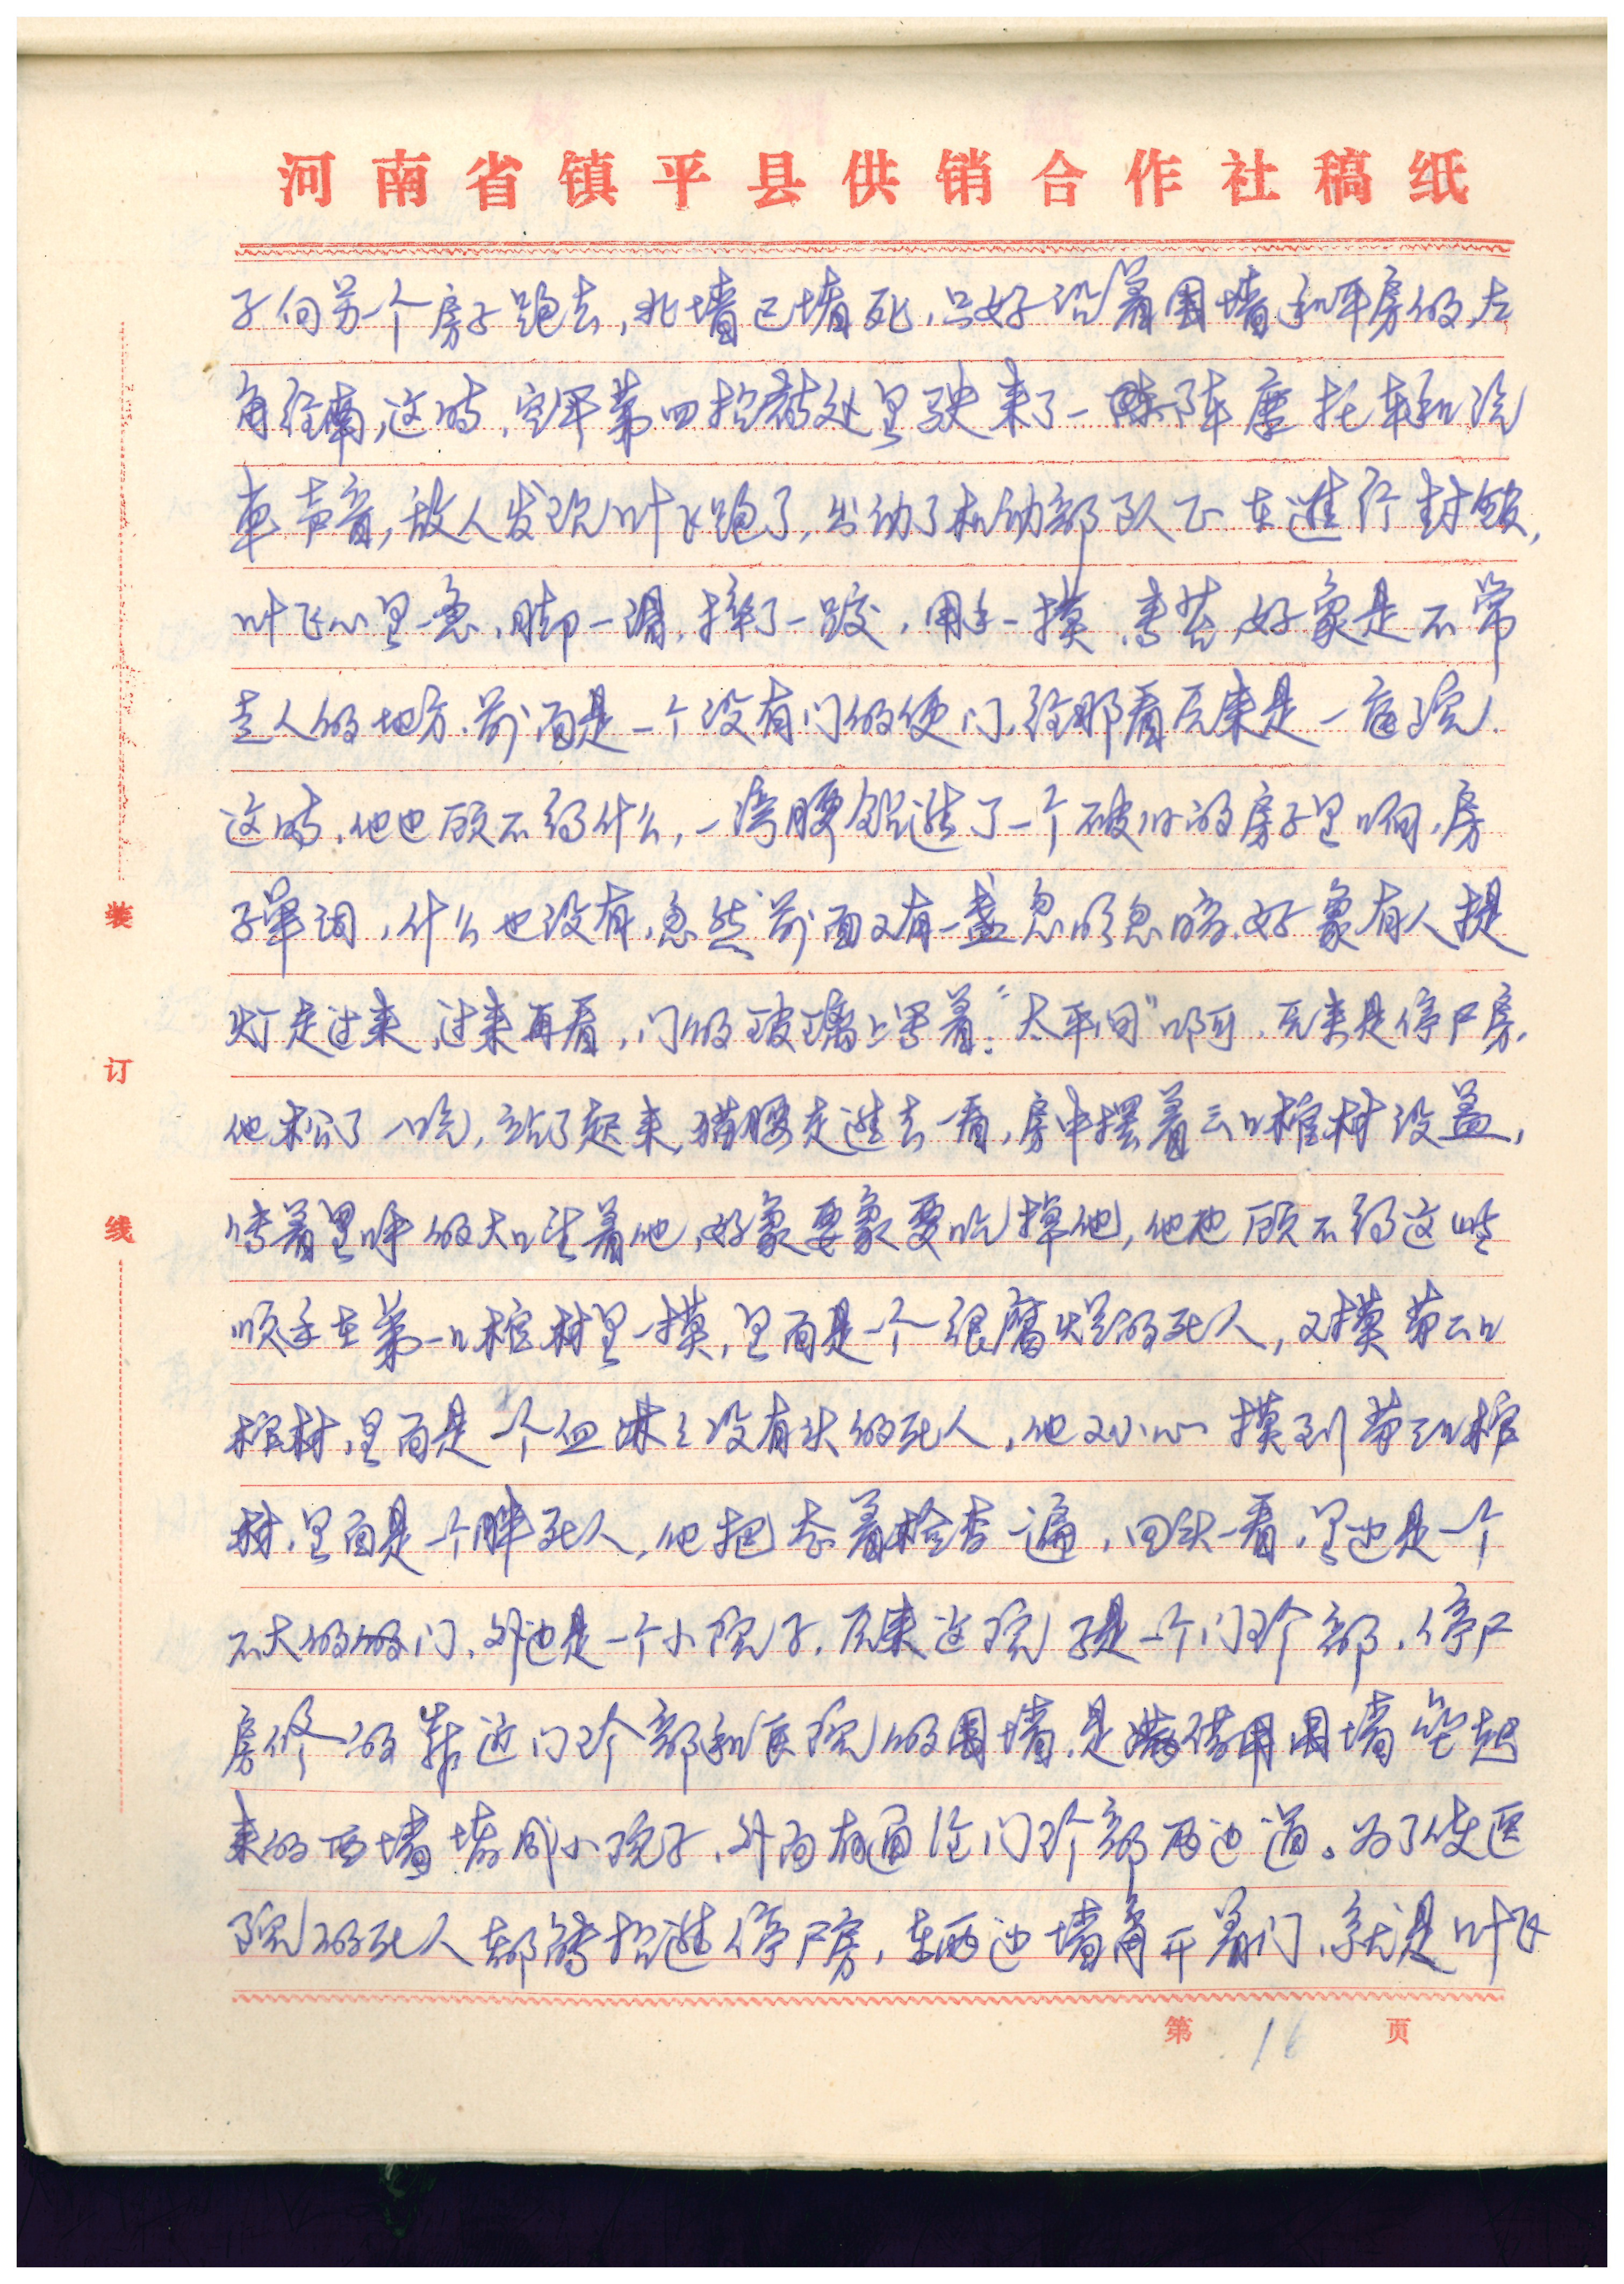 河南省镇平县供销合作社稿纸
子向另一个房子跑去，北墙已堵死，只好沿着围墙和平房的左
角往南，这时，空军第四招待处里驶来了一阵摩托车和汽
車声音，敌人发现叶飞跑了，出动了机动部队正在进行封锁，
叶飞心里一急，脚一滑，摔了一跤，用手一摸，青苔，好象是不常
走人的地方，前面是一个没有门的便门，往那看元来是一庭院．
这时，他也顾不得什么，一弯腰钻进了一个破旧的房子里啊，房
子单调，什么也没有，忽然前面又有一盏忽明忽暗，好象有人提
灯走过来，过来再看，门的玻璃上写着：“太平间”啊，元来是停尸房，
他松了一口气，站了起来，猫腰走进去一看，房中摆着三口棺材没盖，
着黑呼的大口望着他，好象要象要吃掉他，他也顾不得这些
顺手在第一口棺材里一摸，里面是一个很腐烂的死人，又摸第二口
棺材，里面是一个血淋々没有头的死人，他又小心摸到第三口棺
材，里面是一个胖死人，他把看检查一遍，回头一看，里边是一个
不大的门，外边是一个小院子，元来这院子是一个门珍部，停尸
房修的靠近门珍部和医院的围墙，是借用围墙垒起
来的西墙堵成小院子，外面有通往门珍部两边道。为了使医
院的死人都能抬进停尸房，东两边墙角开着门，就是叶飞
装
订
线
第 16 页